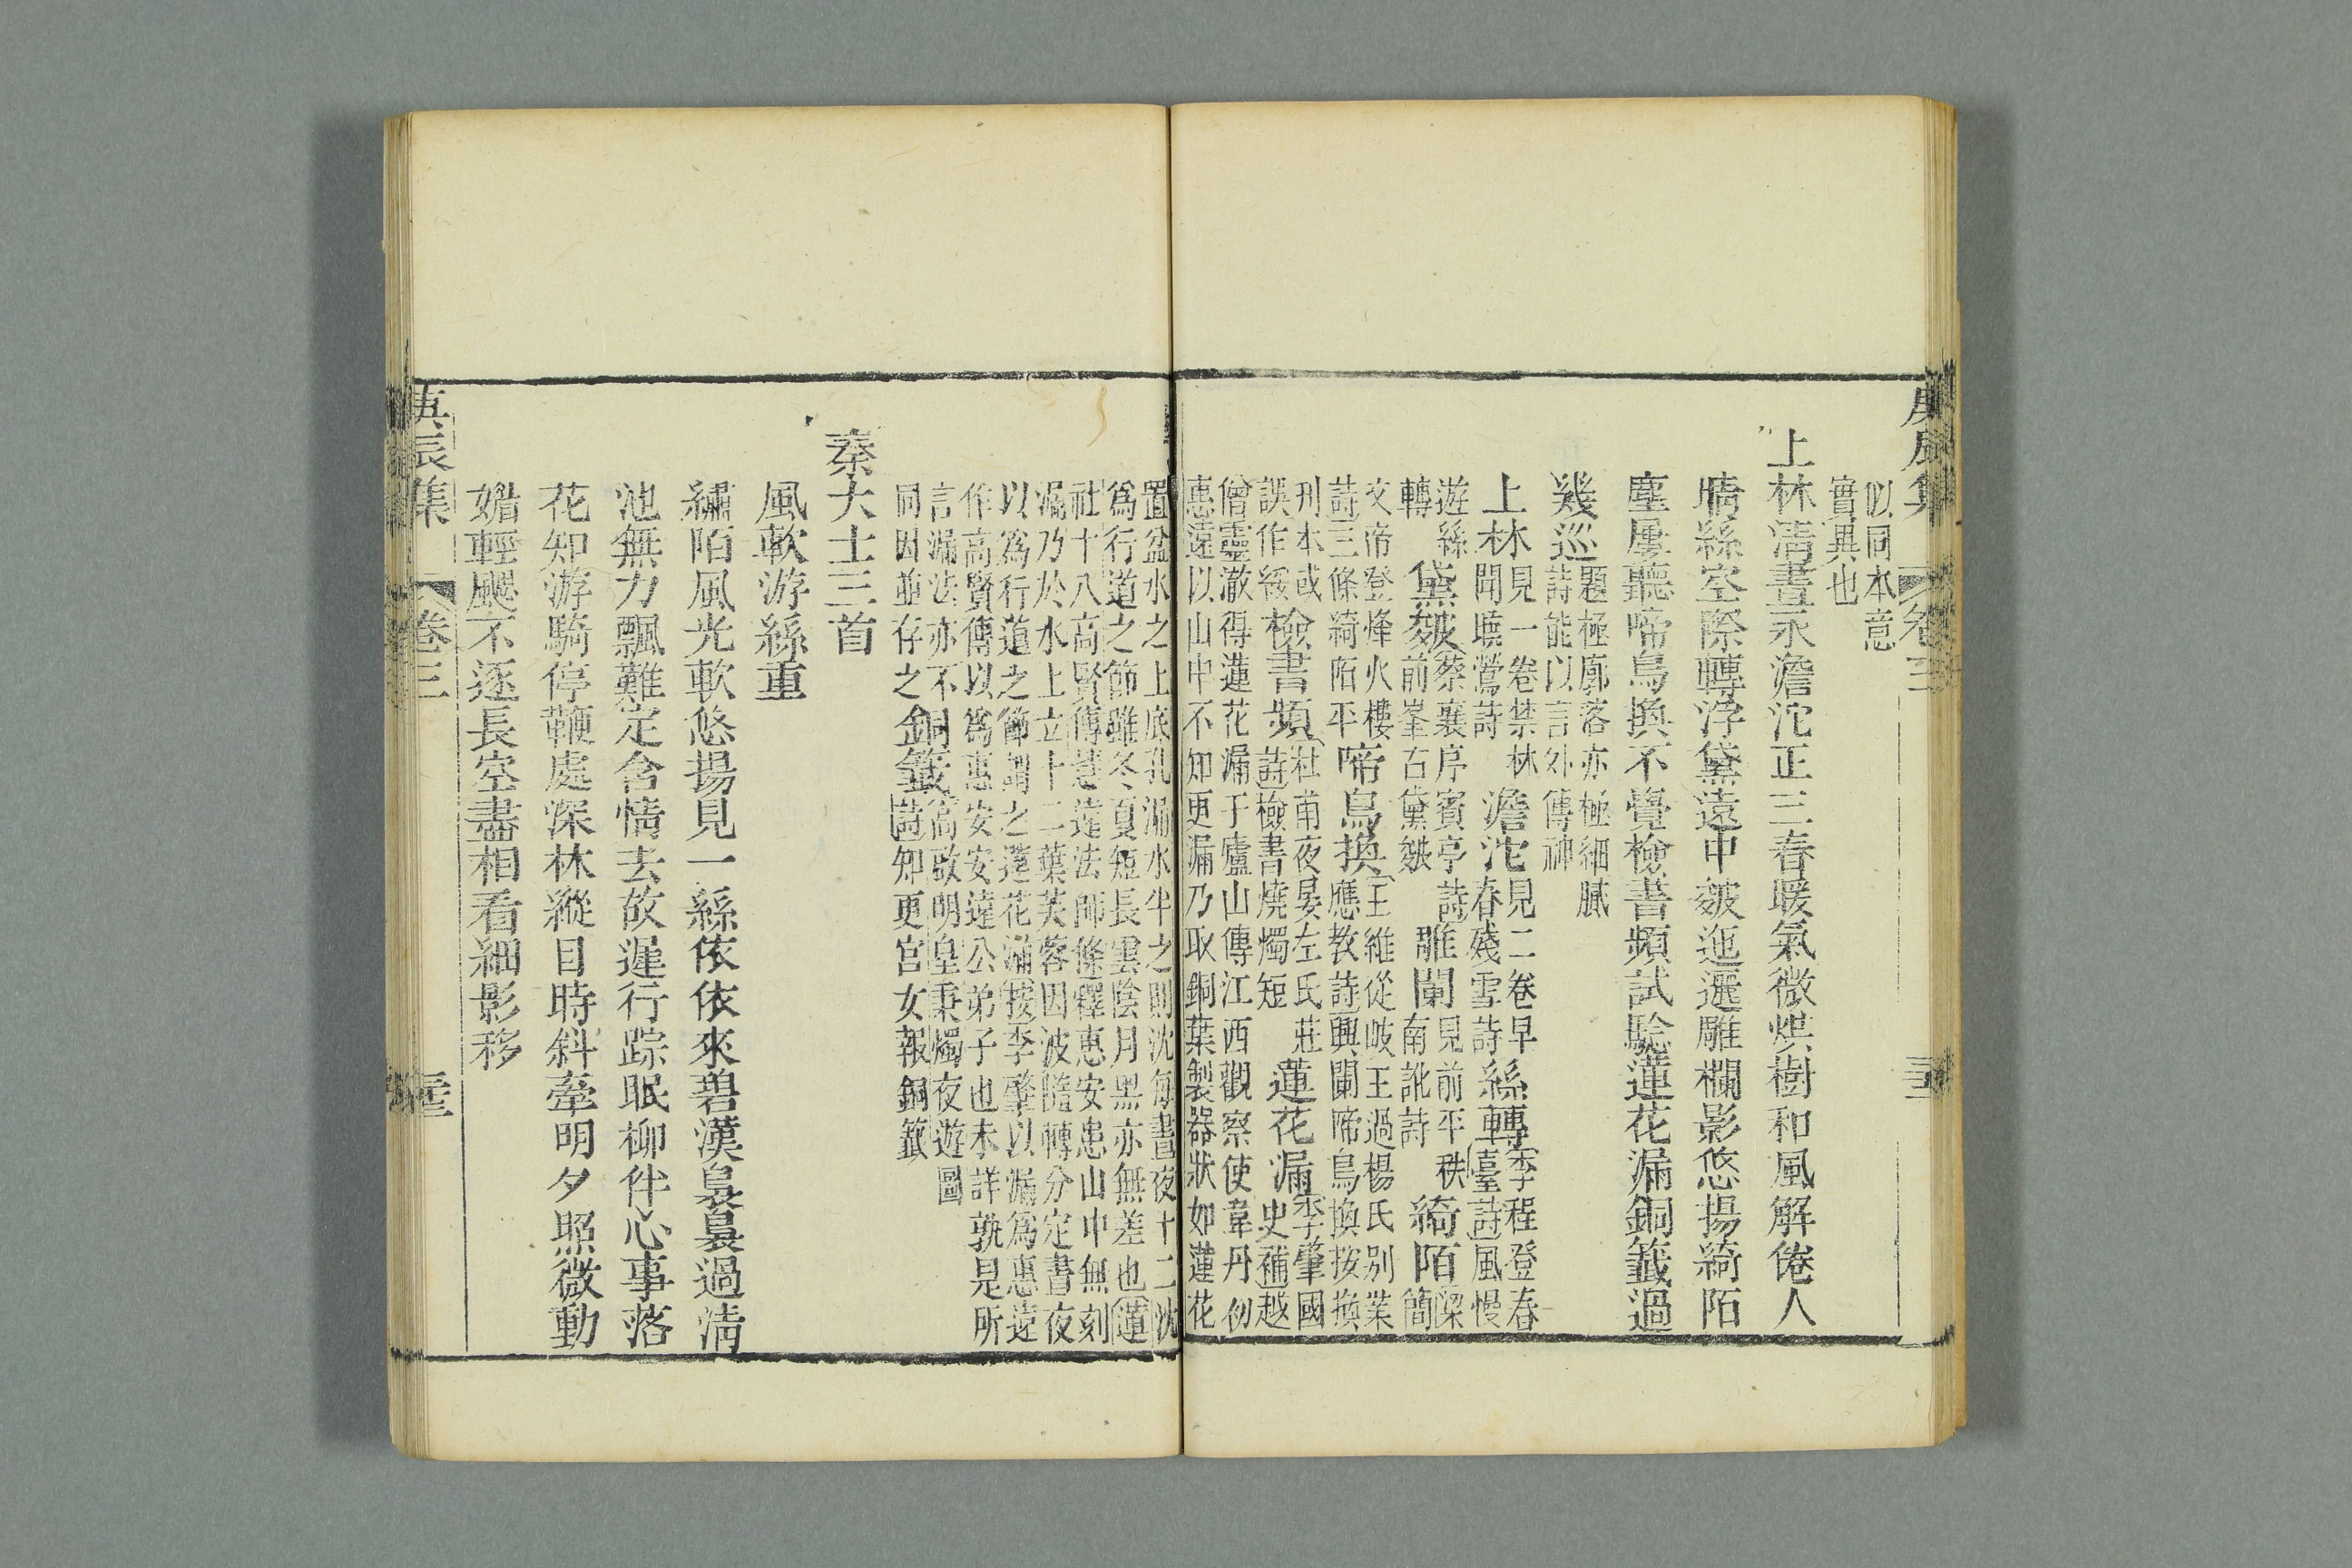 庚辰集
卷三
似同本意
實異也
上林清晝永澹沱正三春暖氣微烘樹和風解倦人
晴絲空際轉浮黛遠中皴迤邐雕欄影悠揚綺陌
塵屢聽啼鳥換不覺檢書頻試驗蓮花漏銅籤過
幾巡題極廓落亦極細膩
詩能以言外傳神
上林見一卷禁林
聞曉鶯詩
澹沱見二卷早
春殘雪詩
絲轉李程登春
臺詩風慢
遊絲
轉
黛皴蔡襄序賓亭詩
前峯石黛皴
雕闌見前平秩
南訛詩
綺陌梁簡
文帝登烽火樓
詩三條綺陌平
啼鳥換王維從岐王過楊氏別業
應教詩興闌啼鳥換按換
刊本或
誤作緩
檢書頻杜甫夜晏左氏莊
詩檢書燒燭短
蓮花漏李肇國
史補越
僧靈澈得蓮花漏于廬山傳江西觀察使韋丹初
惠遠以山中不知更漏乃取銅葉製器狀如蓮花
置盆水之上底孔漏水半之則沈每晝夜十二沈
爲行道之節雖冬夏短長雲陰月黑亦無差也蓮
社十八高賢傳慧遠法師條釋惠安患山中無刻
漏乃於水上立十二葉芙蓉因波隨轉分定晝夜
以爲行道之節謂之蓮花漏按李肇以漏爲惠遠
作高賢傳以爲惠安安遠公弟子也未詳孰是所
言漏法亦不
同因並存之
銅籤高啟明皇秉燭夜遊圖
詩知更宮女報銅籤
秦大士三首
風軟游絲重
繡陌風光軟悠揚見一絲依依來碧漢裊裊過清
池無力飄難定含情去故遲行踪眠柳伴心事落
花知游騎停鞭處深林縱目時斜牽明夕照微動
媚輕颸不逐長空盡相看細影移
庚辰集
卷三